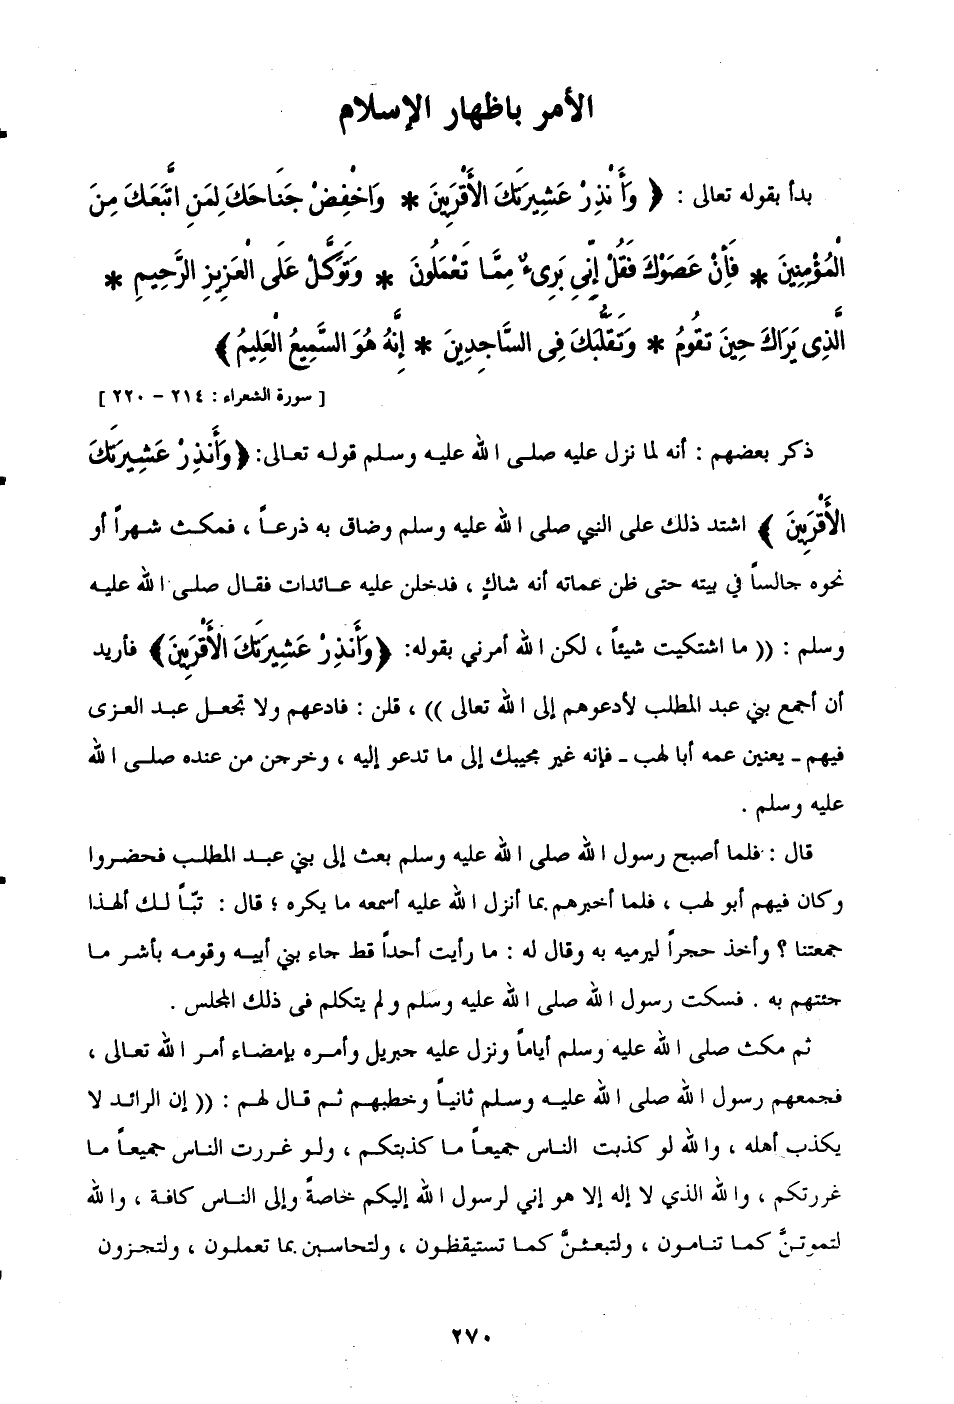 الأمر باظهار الإسلام
بدأ بقوله تعالى : ﴿ وَأَنْذِرْ عَشِيرَتَكَ الْأَقْرَبِينَ * وَاخْفِضْ جَنَاحَكَ لِمَنِ اتَّبَعَكَ مِنَ
الْمُؤْمِنِينَ * فَأِنْ عَصَوْكَ فَقُلْ إِنِّي بَرِىءٌ مِمَّا تَعْمَلُونَ * وَتَوَكَّلْ عَلَى الْعَزِيزِ الرَّحِيمِ *
الَّذِى يَرَاكَ حِينَ تَقُومُ * وَتَقَلُّبَكَ فِى السَّاجِدِينَ * إِنَّهُ هُوَ السَّمِيعُ الْعَلِيمُ ﴾
[ سورة الشعراء : ٢١٤ – ٢٢٠ ]
ذكر بعضهم : أنه لما نزل عليه صلى الله عليه وسلم قوله تعالى: ﴿ وَأَنذِرْ عَشِيرَتَكَ
الْأَقْرَبِينَ ﴾ اشتد ذلك على النبي صلى الله عليه وسلم وضاق به ذرعاً ، فمكث شهراً أو
نحوه جالساً في بيته حتى ظن عماته أنه شاكٍ ، فدخلن عليه عائدات فقال صلى الله عليه
وسلم : (( ما اشتكيت شيئاً ، لكن الله أمرني بقوله: ﴿وَأَنذِرْ عَشِيرَتَكَ الْأَقْرَبِينَ﴾ فأريد
أن أجمع بني عبد المطلب لأدعوهم إلى الله تعالى )) ، قلن : فادعهم ولا تجعل عبد العزى
فيهم ـ يعنين عمه أبا لهب ـ فإنه غير مجيبك إلى ما تدعو إليه ، وخرجن من عنده صلى الله
عليه وسلم .
قال : فلما أصبح رسول الله صلى الله عليه وسلم بعث إلى بني عبد المطلب فحضروا
وكان فيهم أبو لهب ، فلما أخبرهم بما أنزل الله عليه أسمعه ما يكره ؛ قال : تبّاً لك ألهذا
جمعتنا ؟ وأخذ حجراً ليرميه به وقال له : ما رأيت أحداً قط جاء بني أبيه وقومه بأشر ما
جئتهم به . فسكت رسول الله صلى الله عليه وسلم ولم يتكلم فى ذلك المجلس .
ثم مكث صلى الله عليه وسلم أياماً ونزل عليه جبريل وأمره بإمضاء أمر الله تعالى ،
فجمعهم رسول الله صلى الله عليه وسلم ثانياً وخطبهم ثم قال لهم : (( إن الرائد لا
يكذب أهله ، والله لو كذبت الناس جميعاً ما كذبتكم ، ولو غررت الناس جميعاً ما
غررتكم ، والله الذي لا إله إلا هو إني لرسول الله إليكم خاصةً وإلى الناس كافة ، والله
لتموتنَّ كما تنامون ، ولتبعثنَّ كما تستيقظون ، ولتحاسبن بما تعملون ، ولتجزون
٢٧٠